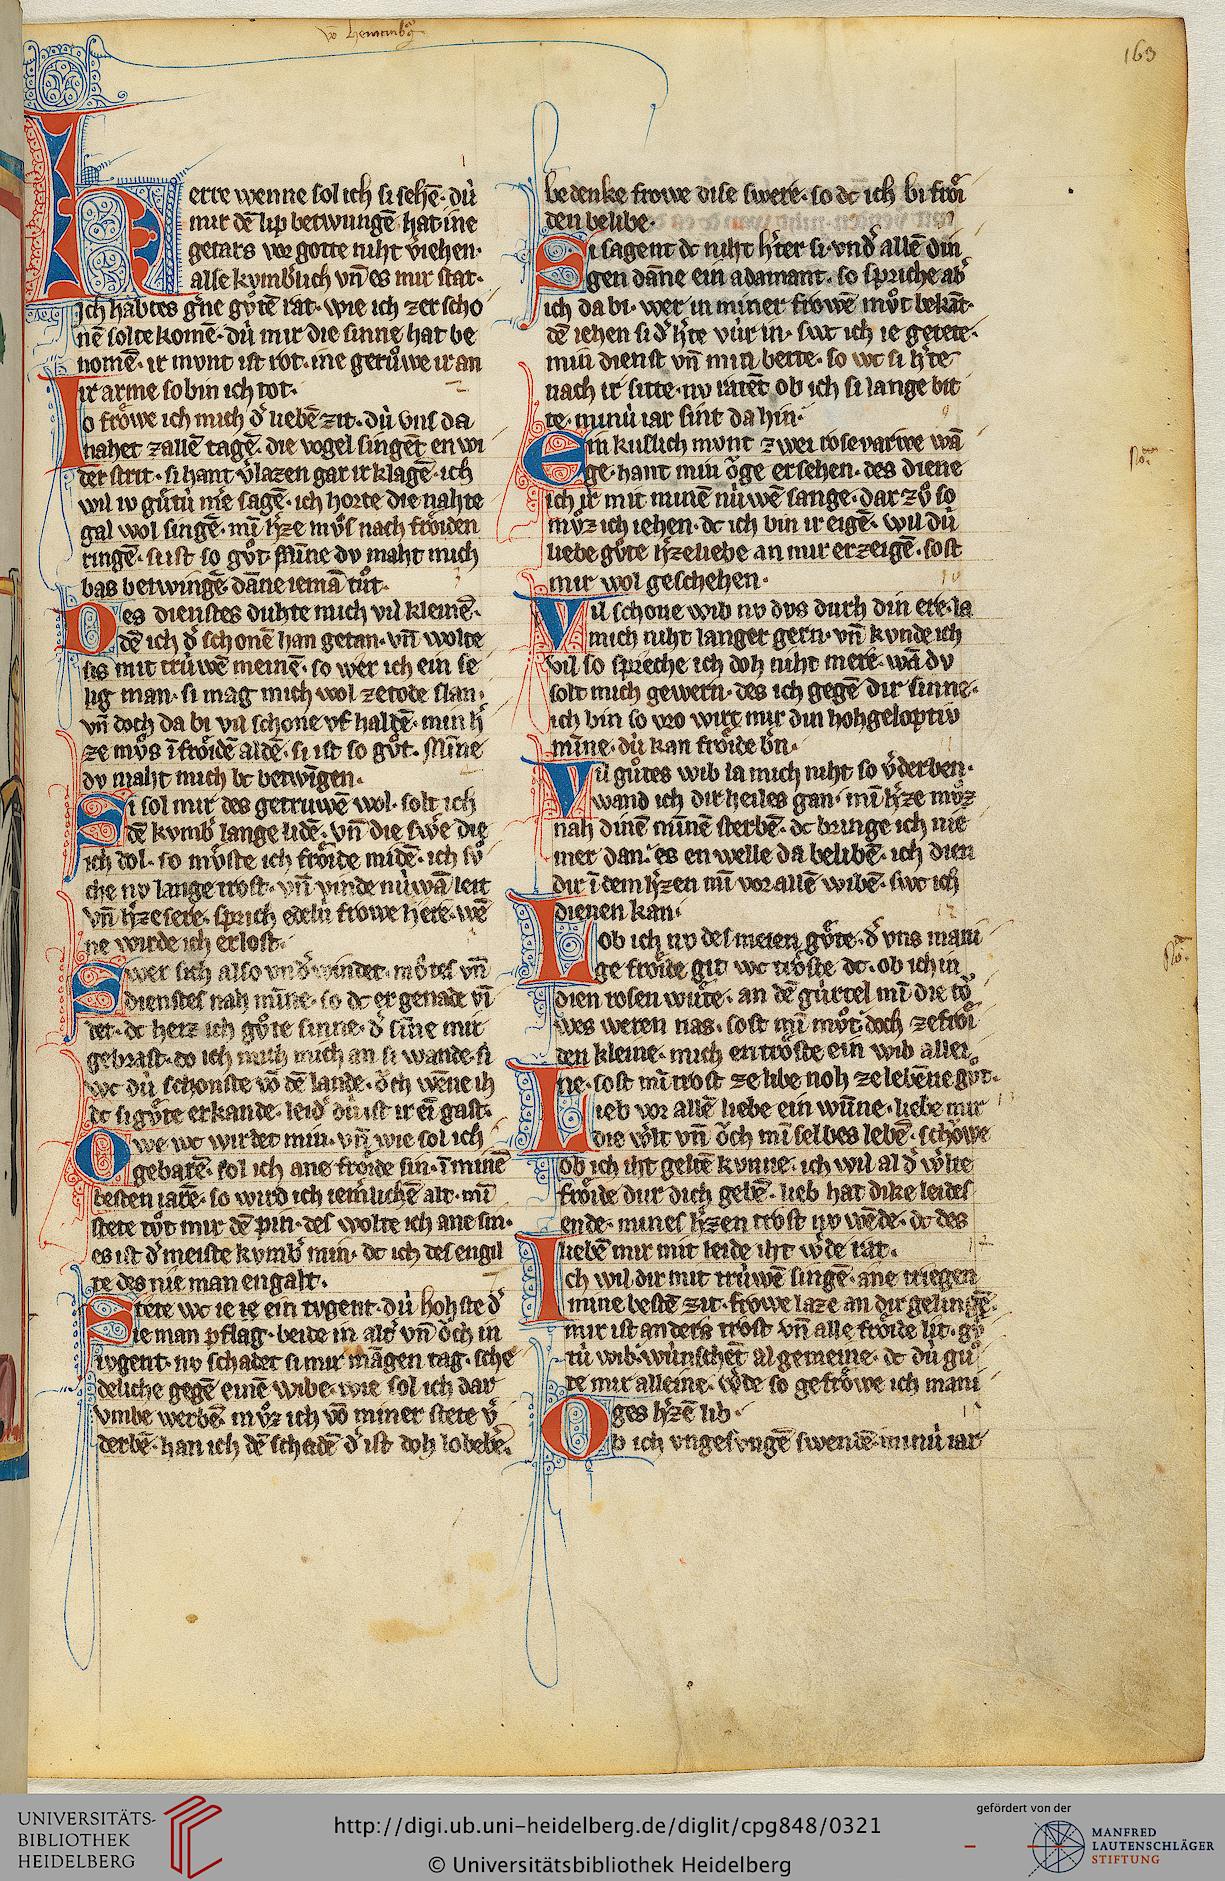 vō heinrinbˢg
163
Herre wenne sol ich si sehē· dv̀
mir dē lip betwungē hat· ine
getars vor gotte niht v̄iehen·
alse kvmb̾lich vn̄ es mir stat·
Ich habtes g̾ne gv̊tē rat· wie ich zer scho
nē solte komē· dv̀ mir die sinne hat be
nomē· ir mvnt ist rot· ine gerůwe ir an
ir arme so bin ich tot·
Io frowe ich mich d̾ liebē zit· dv̀ vns da
nahet zallē tagē· die vogel singēt en wi
der strit· si hant v̾lazen gar ir klagē· ich
wil iv gůtv̀ me̾ sagē· ich horte die nahte
gal wol singē· mī h̾ze mv̊s nach froͤiden
ringē· si ist so gv̊t Minne dv maht mich
bas betwingē dāne iemā tůt·
Des dienstes duhte mich vil kleine·
dē ich d̾ schonē han getan· vn̄ wolte
sis mit trv̀wē meinē· so wer ich ein se
lig man· si mag mich wol ze tode slan·
vn̄ doch da bi vil schone vf haldē· min h̾
ze mv̊s ī froͤidē aldē· si ist so gv̊t· Minne
dv maht mich bc betwīgen·
Si sol mir des getruwē wol· solt ich
dē kvmb̾ lange lidē· vn̄ die sw̾e die
ich dol· so mv̊ste ich froͤide midē· ich sv̊
che nv lange trost· vn̄ vinde nv̀wā leit
vn̄ h̾zesere· sprich edelv̀ frowe here· wē
ne wirde ich erlost·
Swer sich also vnd̾windet· mv̊tes vn̄
dienstes nah mīne· so dc er genade vī
det· dc heiz ich gv̊te sinne· d̾ sīne mir
gebrast· do ich mich an si wande· si
wc dv̀ schonste vō dē lande· oͮch wēne ih
dc si gv̊te erkande· leid̾ dv̀ ist ir eī gast·
Owe wc wirdet min· vn̄ wie sol ich
gebarē· sol ich ane froͤide sin· ī minē
besten iarē· so wird ich iem̾lichē alt· mī
stete tv̊t mir dē pin· des wolte ich ane sin·
es ist d̾ meiste kvmb̾ min· dc ich des engil
te des nie man engalt·
Stete wc ie ein tvgent· dv̀ hohste d̾
ie man pflag· beide in alt̾ vn̄ oͮch in
ivgent· nv schadet si mir māgen tag· sche
deliche gegē einē wibe· wie sol ich dar
vmbe werbē· mv̊z ich vō miner stete v̾
derbē· han ich dē schadē d̾ ist doh lobebe̾·
bedenke frowe dise swere· so dc ich bi froͤi
den belibe·
Si sagent dc niht h̾ter si· vnd̾ allē din
gen dāne ein adamant· so spriche ab̾
ich da bi· wer in miner frowē mv̊t bekāt·
dē iehen si d̾ h̾te vùr in· swc ich ie getete·
min dienst vn̄ min bette· so wc si h̾te
nach ir sitte· nv ratēt ob ich si lange bit
te· minù iar sint da hin·
Ein kuslich mvnt zwei rosevarwe wā
ge· hant min oͮge ersehen· des diene
ich ir mit minē nùwē sange· dar zv̊ so
mv̊z ich iehen· dc ich bin ir eigē· wil dù
liebe gv̊te h̾zeliebe an mir erzeigē· so st
mir wol geschehen·
Vil schone wib nv dvs durh din ere· la
mich niht langer gern· vn̄ kvnde ich
vil so spreche ich doh niht mere· wā dv
solt mich gewern· des ich gegē dir sinne·
ich bin so vro wirt mir din hohgeloptiv
mīne· dù kan froͤide b̾n·
Vil gůtes wib la mich niht so v̾derben·
wand ich dir heiles gan· mī h̾ze mv̊z
nah dinē mīnē sterbē· dc bringe ich nie
mer dan· es en welle da belibē· ich dien
dir ī dem h̾zen mī vor allē wibē· swc ich
dienen kan·
Lob ich nv des meien gv̊te· d̾ vns mani
ge froͤide git wc troͤste dc· ob ich in
dien rosen wūte· an dē gùrtel mī die toͮ
wes weren nas· sost mī mv̊t doch ze froͤi
den kleine· mich entroͤste ein wib allei
ne· sost mī trost ze libe noh ze lebēne gv̊t·
Lieb vor allē liebe ein wūne· liebe mir
die w̾lt vn̄ oͮch mī selbes lebē· schoͮwe
ob ich iht geltē kvnne· ich wil al d̾ w̾lte
froͤide dur dich gebē· lieb hat dike leides
ende· mines h̾zen trost nv wēde· dc des
liebē mir mit leide iht w̾de rat·
Ich wil dir mit trùwē singē· ane triegen
mine bestē zit· frowe laze an dir gelingē·
mir ist anders trost vn̄ alle froͤide lit· gv̊
tù wib wùnschēt algemeine· dc dù gů
te mir alleine· w̾de so gefroͮwe ich mani
ges h̾zē lib·
Ob ich vngesvngē swendē· minù iar
UNIVERSITÄTS-
BIBLIOTHEK
HEIDELBERG
http://digi.ub.uni-heidelberg.de/diglit/cpg848/0321
© Universitätsbibliothek Heidelberg
gefördert von der
MANFRED
LAUTENSCHLÄGER
STIFTUNG